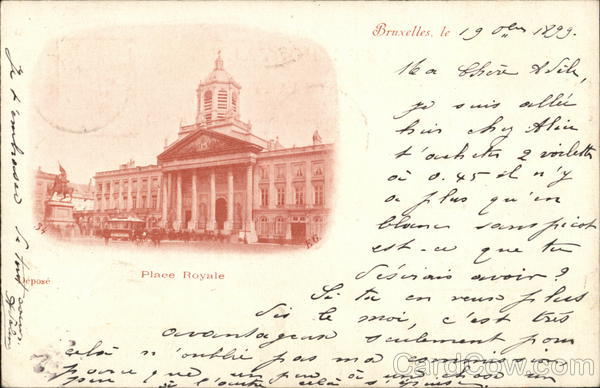 Bruxelles, le 19 8bre 1899.
Ma Chère Adèle,
je suis allée
hier chez Alice
t'acheter 2 voilettes
à 0.45 il n'y
a plus qu'en
blanc sans picot
est-ce que tu
désirais avoir?
Si tu en veux plus
dis le moi, c'est très
avantageux seulement pour
cela n'oublie pas ma commission
parce que un peu à
à l'autre cela
Je t'embrasse
de tout cœur
34
E.G.
Déposé
Place Royale
CardCow.com